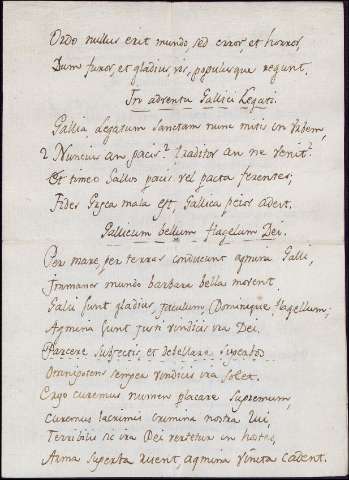 Ordo nullus erit mundo, sed error, et horror,
Dum furor, et gladius, vis, populusque regunt.
In adventu Gallici Legati.
Gallia Legatum sanctam nunc mitis in Urbem,
? Nuncius an pacis? traditor an ne venit?
Et timeo Gallos pacis vel pacta ferentes;
Fides Græca mala est, Gallica peior adest.
Gallicum bellum flagellum Dei.
Per mare, per terras conducunt agmina Galli,
Immanes mundo barbara bella movent.
Galli sunt gladius, jaculum, Dominique flagellum;
Agmina sunt justi vindicis ira Dei.
Parcere subjectis, et debellare superbos
Omnipotens semper vindicis ira solet.
Ergo curemus numen placare supremum,
Curemus lacrimis crimina nostra lui,
Terribilis sic ira Dei vertetur in hostes,
Arma superba ruent, agmina victa cadent.